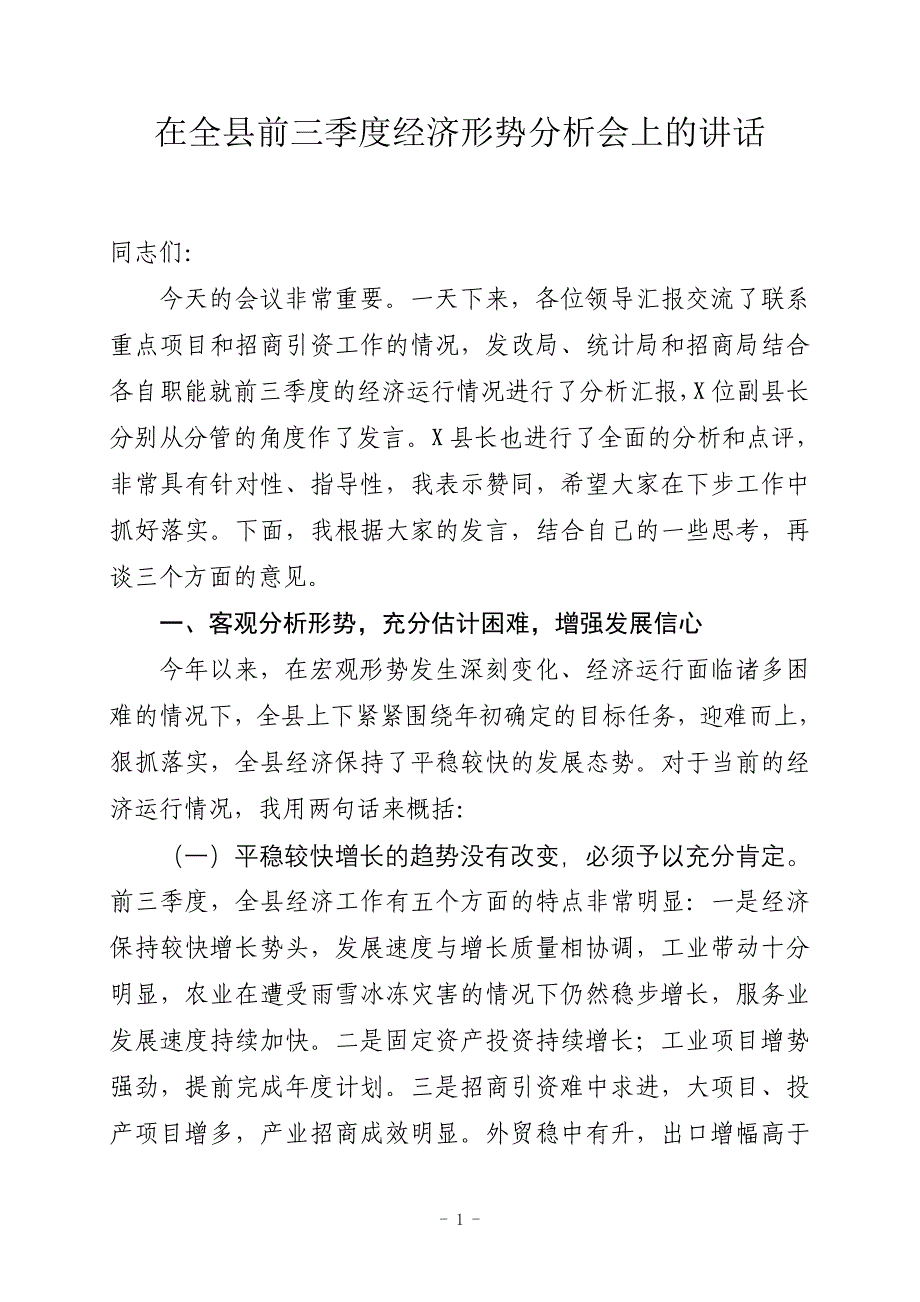 在全县前三季度经济形势分析会上的讲话
同志们：
今天的会议非常重要。一天下来，各位领导汇报交流了联系
重点项目和招商引资工作的情况，发改局、统计局和招商局结合
各自职能就前三季度的经济运行情况进行了分析汇报，X 位副县长
分别从分管的角度作了发言。X 县长也进行了全面的分析和点评，
非常具有针对性、指导性，我表示赞同，希望大家在下步工作中
抓好落实。下面，我根据大家的发言，结合自己的一些思考，再
谈三个方面的意见。
一、客观分析形势，充分估计困难，增强发展信心
今年以来，在宏观形势发生深刻变化、经济运行面临诸多困
难的情况下，全县上下紧紧围绕年初确定的目标任务，迎难而上，
狠抓落实，全县经济保持了平稳较快的发展态势。对于当前的经
济运行情况，我用两句话来概括：
（一）平稳较快增长的趋势没有改变，必须予以充分肯定。
前三季度，全县经济工作有五个方面的特点非常明显：一是经济
保持较快增长势头，发展速度与增长质量相协调，工业带动十分
明显，农业在遭受雨雪冰冻灾害的情况下仍然稳步增长，服务业
发展速度持续加快。二是固定资产投资持续增长；工业项目增势
强劲，提前完成年度计划。三是招商引资难中求进，大项目、投
产项目增多，产业招商成效明显。外贸稳中有升，出口增幅高于
- 1 -